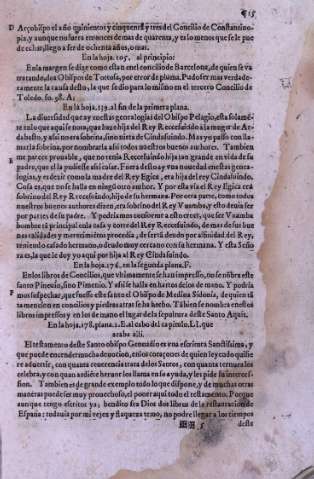 915
D Arçobispo el año quinientos y cinquenta y tres del Concilio de Constantino-
pla, y aunque no fuera entonces de mas de quarenta, y esto lo menos que se le pue
de echar, llego a ser de ochenta años, o mas.
En la hoja. 105. al principio:
En la margen se dize como estan en el concilio de Barcelona, de quien se va
tratando, los Obispos de Tortosa, por error de pluma. Pudo ser mas verdade-
ramente la causa desto, la que se dio para lo mismo en el tercero Concilio de
Toledo. fo. 98. A:
En la hoja. 139. al fin de la primera plana.
La diuersidad que ay en estas genealogias del Obispo Pelagio, esta solamẽ
te en lo que aqui se nota, que haze hija del Rey Recesuindo a la muger de Ar-
dabasto, y assi no era sobrina, sino nieta de Cindasuindo. Mas yo passo con lla-
marla sobrina, por nombrarla assi todos nuestros buenos autores. Tambien
me parece prouable, que no tenia Recesuindo hija tan grande en vida de su
padre, que el la pudiesse assi casar. Fuera desto ay vna nouedad en estas genea-
logias, y es dezir como la madre del Rey Egica, era hija del Rey Cindasuindo.
Cosa es, que no se halla en ningũ otro author. Y por esta via el Rey Egica era
sobrino del Rey Recesuindo, hijo de su hermana. Por otra parte, como todos
nuestros buenos authores dizen, era sobrino del Rey Vuamba, y esto deuia ser
por partes de su padre. Y podria nos conformar a esto creer, que ser Vuamba
hombre tã principal en la casa y corte del Rey Recesuindo, de mas de sus bue
nas calidades y merecimiẽtos procedia, de ser el deudo por afinidad del Rey,
teniendo casado hermano, o deudo muy cercano con su hermana. Y esta Seño
ra es, la que le doy yo aqui por hija al Rey Cindasuindo.
En la hoja. 176. en la segunda plana. F.
En los libros de Concilios, que vltimamente se han impresso, no se nõbra este
santo Pimenio, sino Pimenio. Y assi se halla en hartos dellos de mano. Y podria
mos sospechar, que fuesse este santo el Obispo de Medina Sidonia, de quien es
ta mencion en concilios y piedras atras se ha hecho. Tãbien se nombra en estos
libros impressos y en los de mano el lugar de la sepultura deste Santo Aquis.
En la hoja. 178. plana. 2. E al cabo del capitulo. LI. que
acaba alli.
El testamento deste Santo obispo Gennadio es vna escritura Sanctissima, y
que puede encender mucha deuocion, en los coraçones de quien ley ere do quisie
re aduertir, con quanta reuerencia trata de los Santos, con quanta ternura los
celebra, y con quan ardiẽte heruor los llama en su ayuda, y les pide su interces-
sion. Tambien es de grande exemplo todo lo que dispone, y de muchas otras
maneras puede ser muy prouechoso, el poner aqui todo el testamento. Porque
aunque tengo escritos ya, bendito sea Dios dos libros de la restauracion de
España: todauia por mi vejez y flaqueza temo, no podre llegar a los tiempos
5 deste